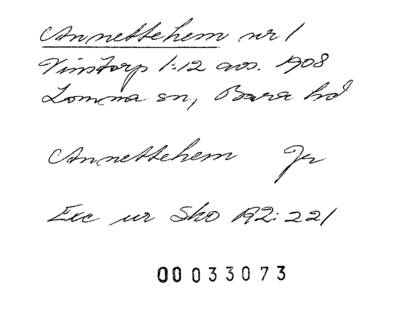 Annettehem nr 1
Vinstorp 1:12 avs. 1908
Lomma sn, Bara hd
Annettehem Gr
Exc ur Sko A2:221
00033073